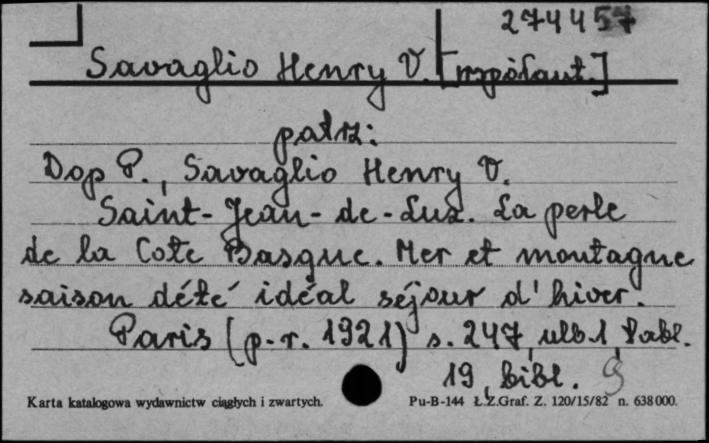 274457
Savaglio Henry V. [współaut.]
patrz:
Dop P., Savaglio Henry V.
Saint-Jean-de-Luz. La perle
de la Cote Basque. Mer et montagne
saison d'été idéal séjour d'hiver.
Paris (p.r. 1921) s. 247, ulb. 1, tabl.
19, bibl. 9
Karta katalogowa wydawnictw ciągłych i zwartych. Pu-B-144 Ł.Z.Graf. Z. 120/15/82 n. 638000.